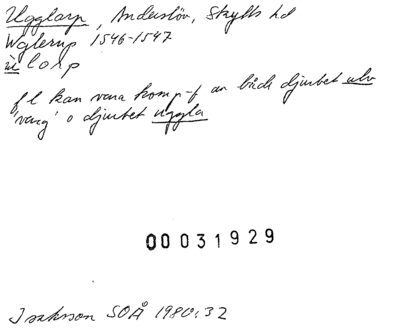 Ugglarp, Anderslöv, Skytts hd
Wglerup 1546-1547
ùlorp
fl kan vara komp-f av både djurbet ulv
'varg' o djurbet uggla
00031929
Isaksson SOÅ 1980:32